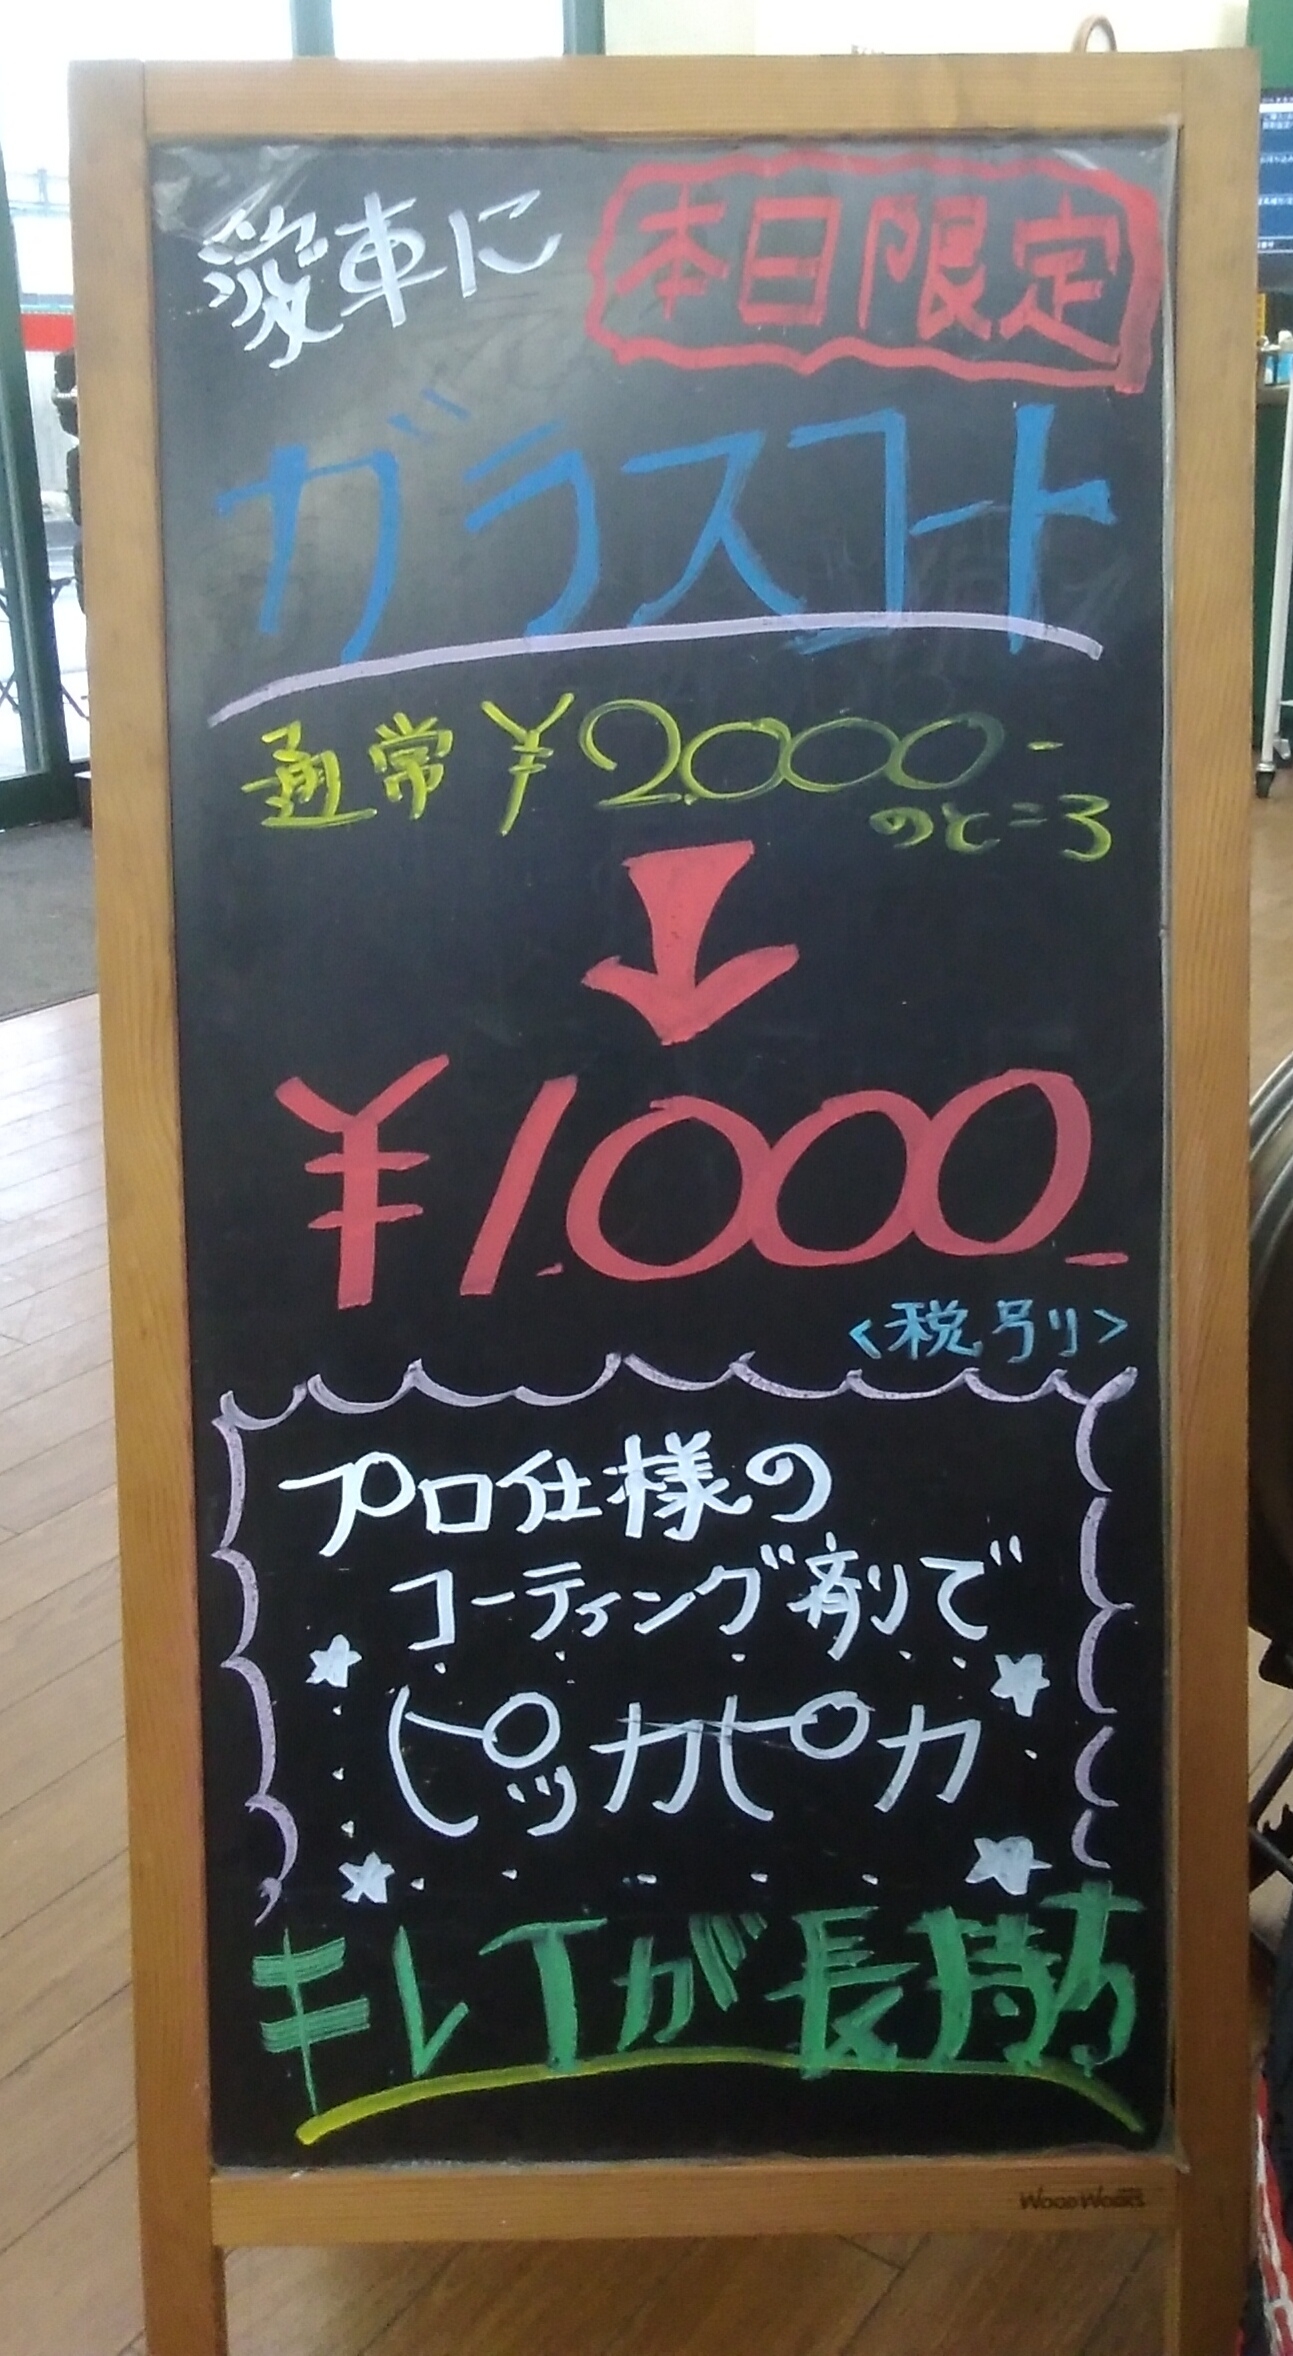 愛車に
本日限定
ガラスコート
通常¥2,000-
のところ
¥1,000-
<税別>
プロ仕様の
コーティング剤で
ピッカピカ
キレイが長持ち
WOOD WORKS